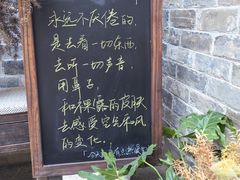 永远不厌倦的，
是去看一切东西，
去听一切声音，
用鼻子，
和裸露的皮肤
去感受空气和风
的变化…